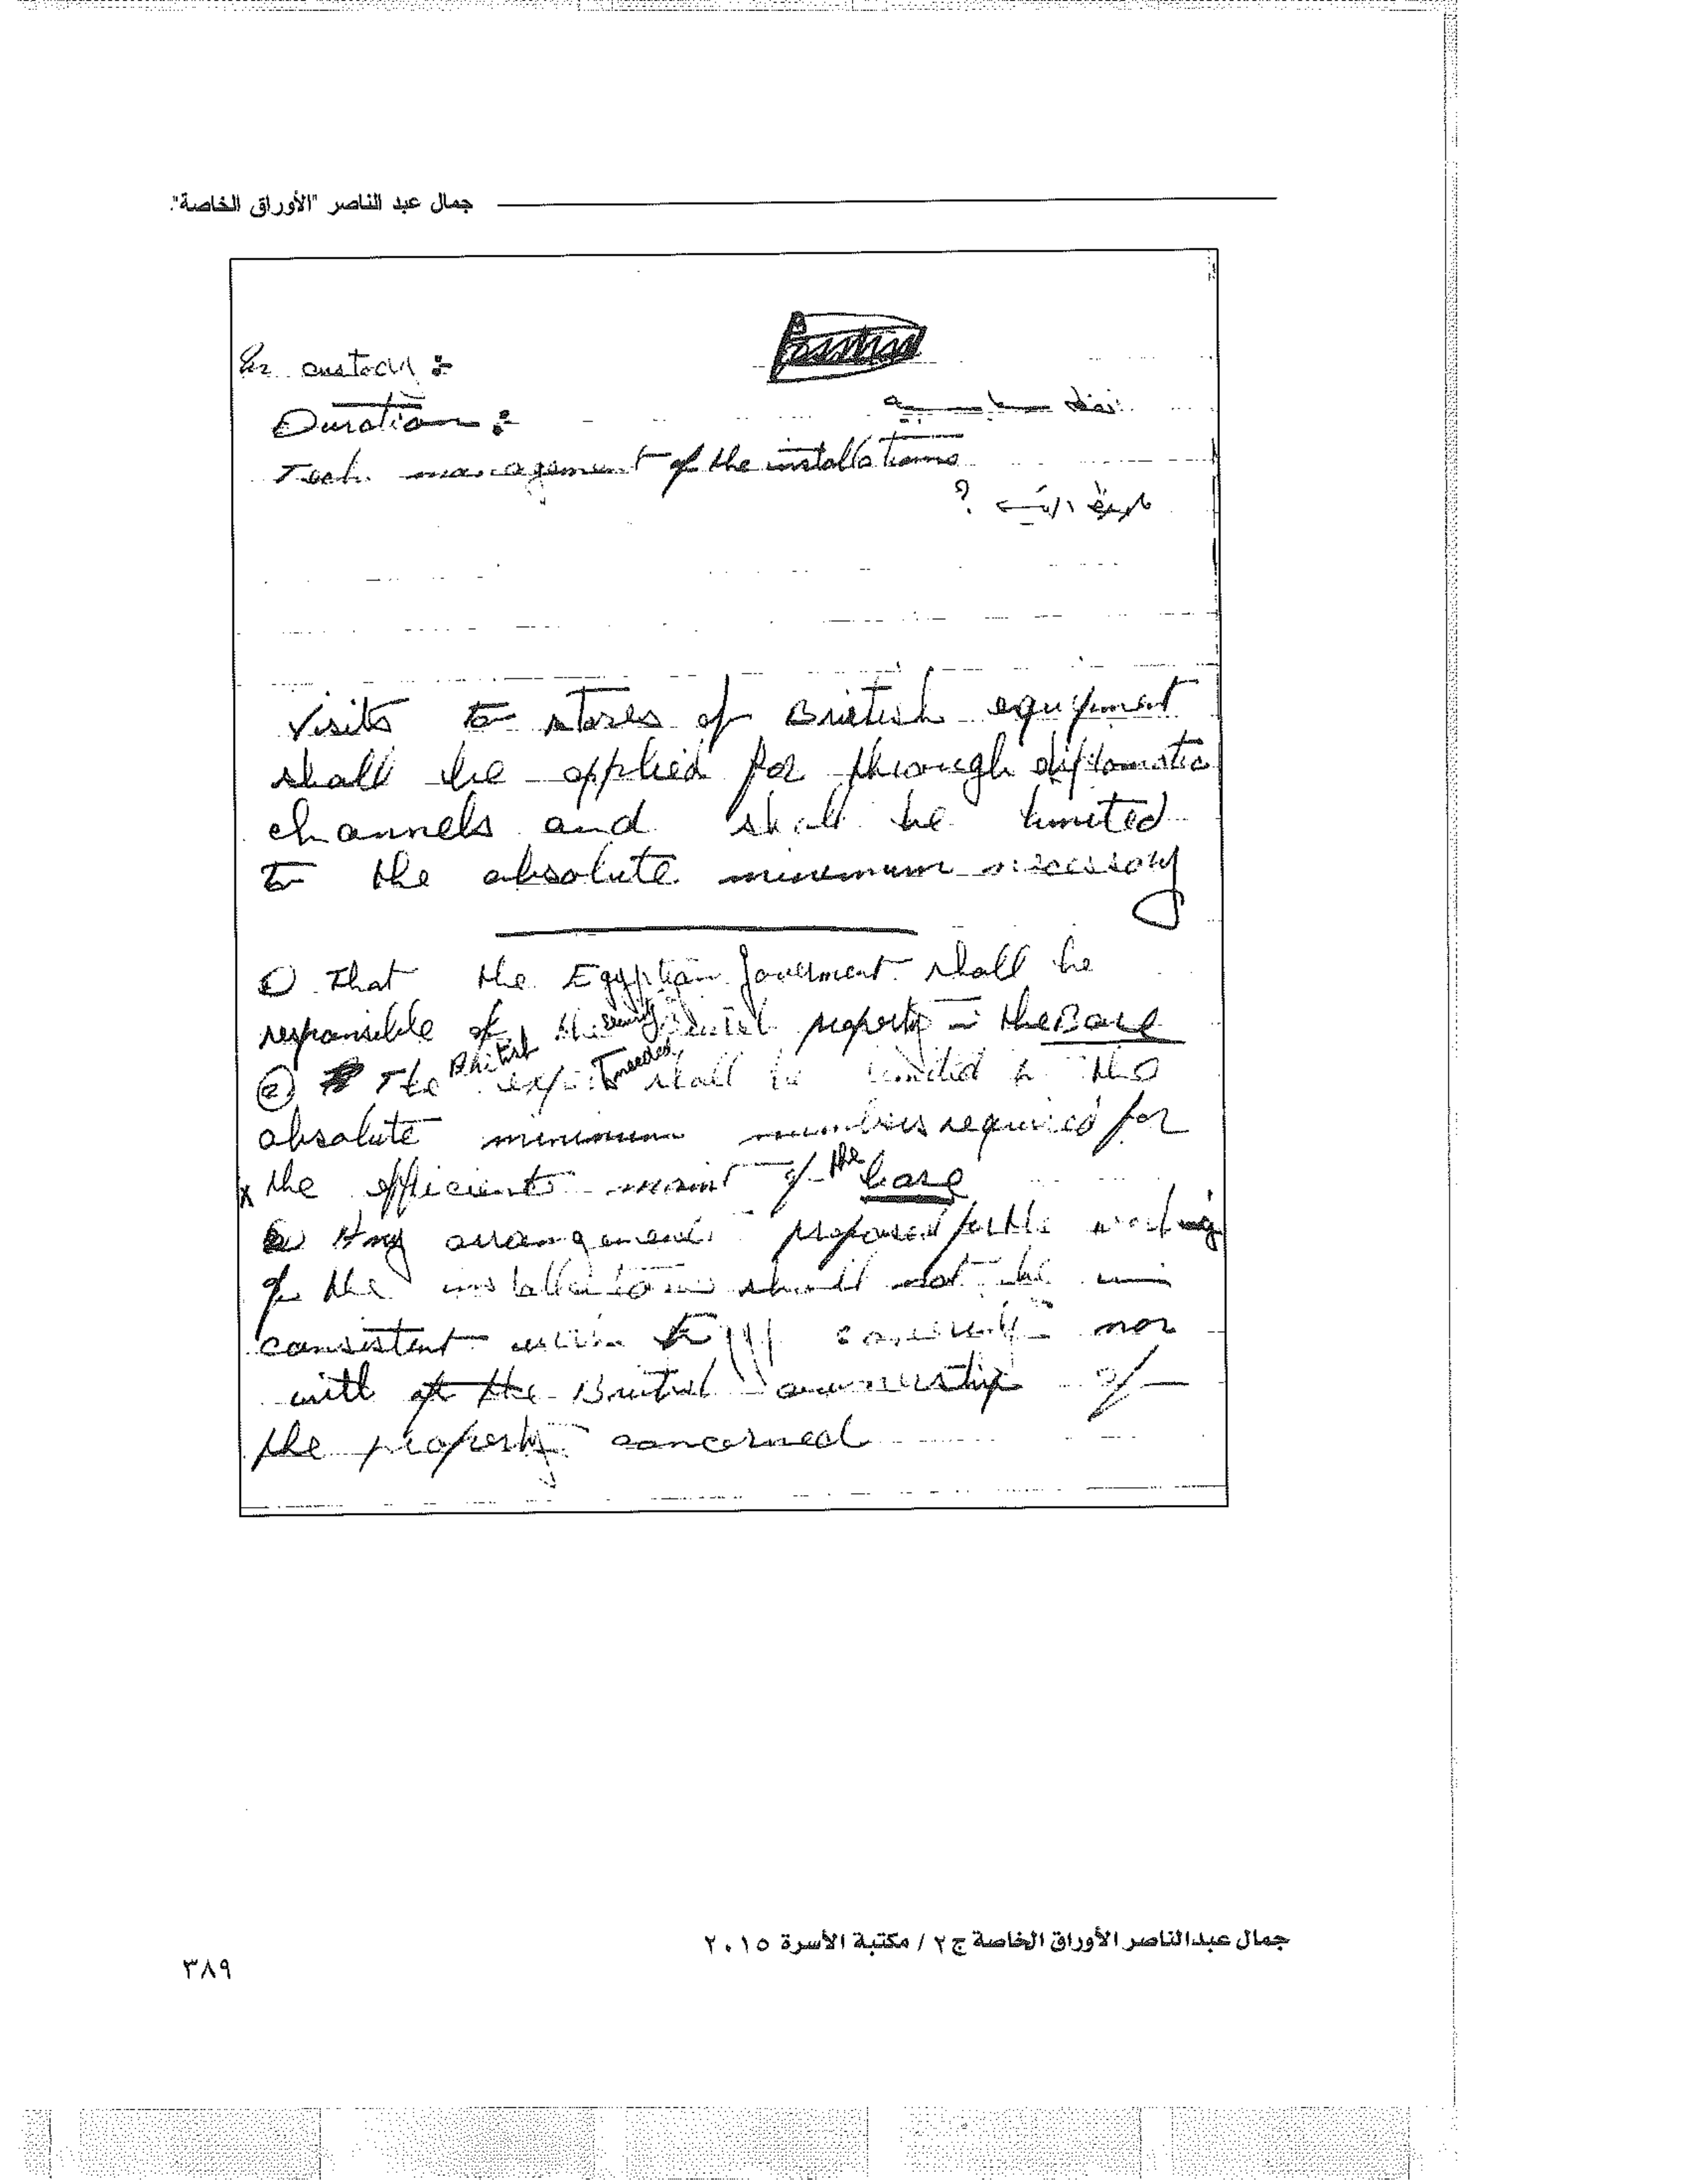 جمال عبد الناصر "الأوراق الخاصة".
In custody :
Duration :
Tech. management of the installations
طريقة ?
Visits to stores of British equipment
shall be applied for through diplomatic
channels and shall be limited
to the absolute minimum necessary
① That the Egyptian government shall be
responsible of the security property in the Base
② The British experts needed shall be limited to the
absolute minimum numbers required for
x the efficient maint of the base
Any arrangement proposed for the working
of the installations shall not be in
consistent with nor
with of the British ownership of
the property concerned
جمال عبدالناصر الأوراق الخاصة ج٢ / مكتبة الأسرة ٢٠١٥
٣٨٩